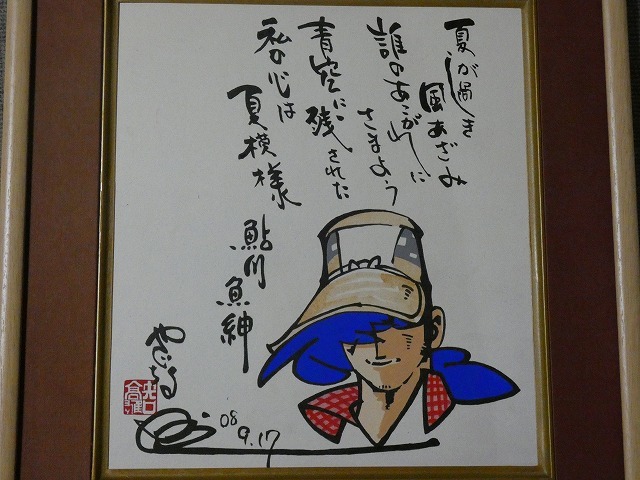 夏が過ぎ
風あざみ
誰のあこがれに
さまよう
青空に残された
私の心は
夏模様
鮎川魚紳
08
9.17